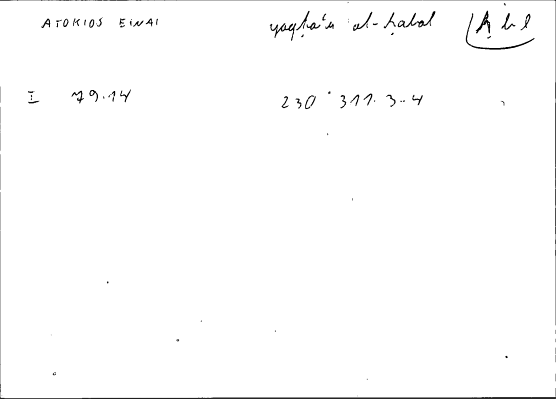 ATOKIOS EINAI yaqṭa'u al-ḥabal ḥbl
I 79.14 230 311.3-4